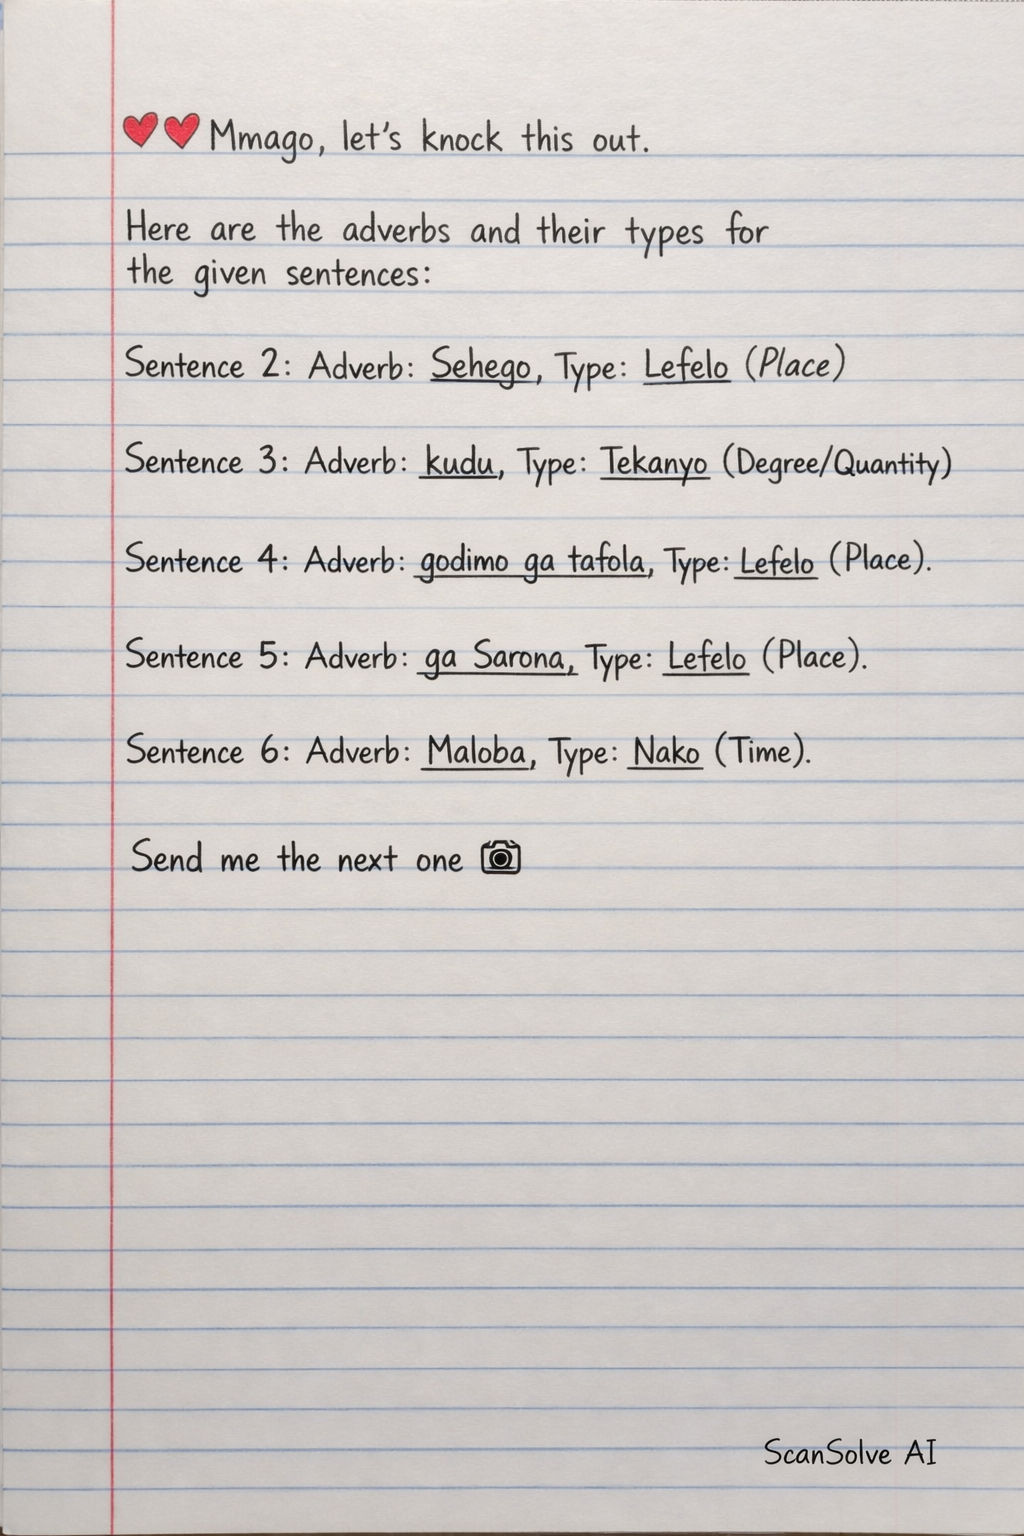 ❤️❤️ Mmago, let's knock this out.
Here are the adverbs and their types for
the given sentences:
Sentence 2: Adverb: Sehego, Type: Lefelo (Place)
Sentence 3: Adverb: kudu, Type: Tekanyo (Degree/Quantity)
Sentence 4: Adverb: godimo ga tafola, Type: Lefelo (Place).
Sentence 5: Adverb: ga Sarona, Type: Lefelo (Place).
Sentence 6: Adverb: Maloba, Type: Nako (Time).
Send me the next one 📷
ScanSolve AI